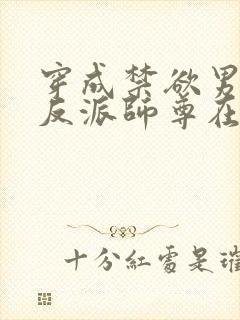 穿成禁欲男
反派師尊在
十分紅處是璀